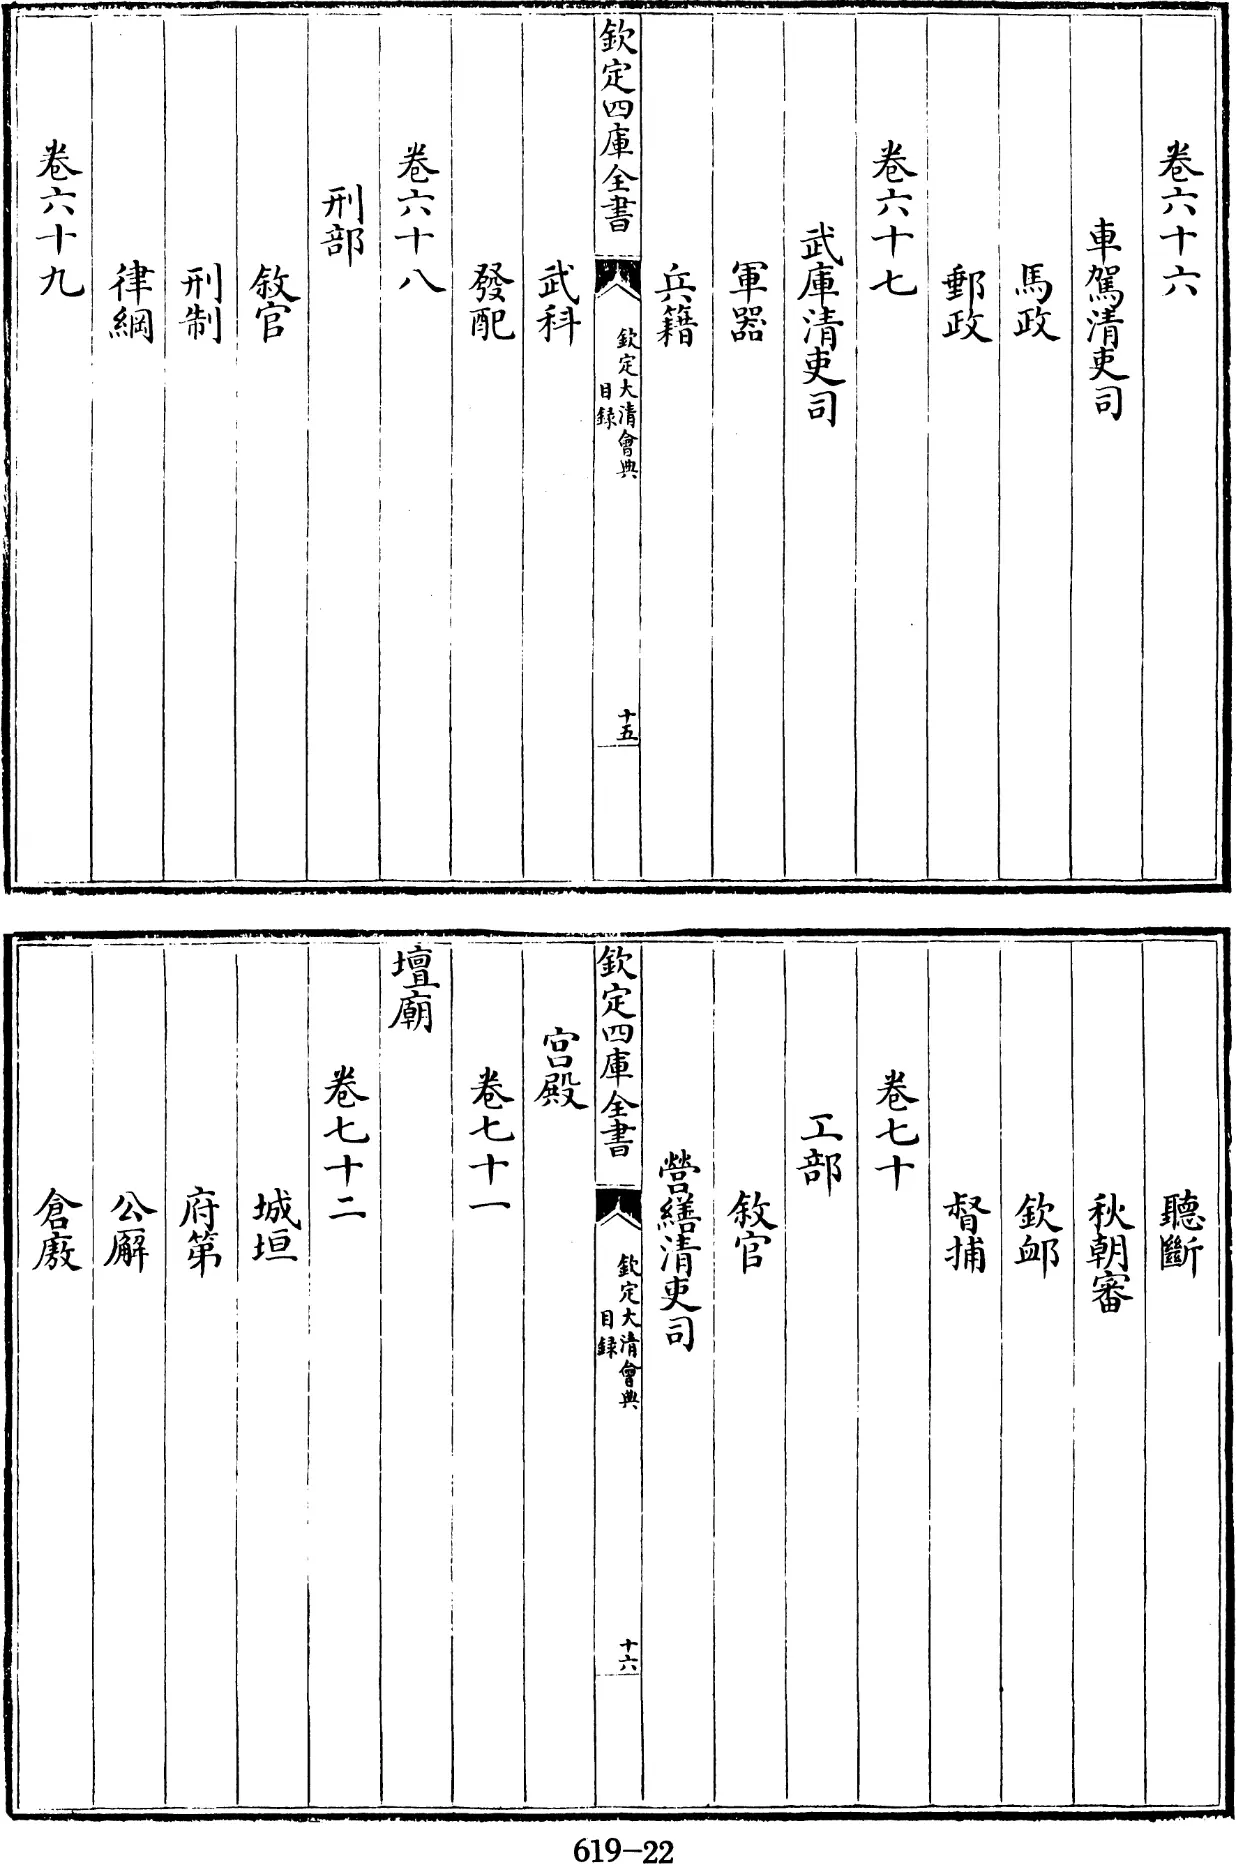 卷六十六
車駕清吏司
馬政
郵政
卷六十七
武庫清吏司
軍器
兵籍
欽定四庫全書
欽定大清會典
目録
十五
武科
發配
卷六十八
刑部
敘官
刑制
律綱
卷六十九
聽斷
秋朝審
欽卹
督捕
卷七十
工部
敘官
營繕清吏司
欽定四庫全書
欽定大清會典
目録
十六
宮殿
卷七十一
壇廟
卷七十二
城垣
府第
公廨
倉廒
619-22